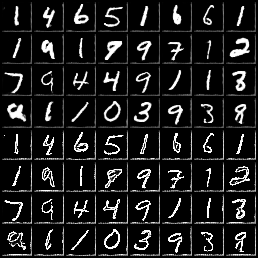 1 4 6 5 1 6 6 1
1 9 1 9 9 7 1 2
7 9 4 4 9 1 1 3
2 1 1 0 3 9 3 9
1 4 6 5 1 6 6 1
1 9 1 8 9 7 1 2
7 9 4 4 9 1 1 3
2 1 1 0 3 9 3 9